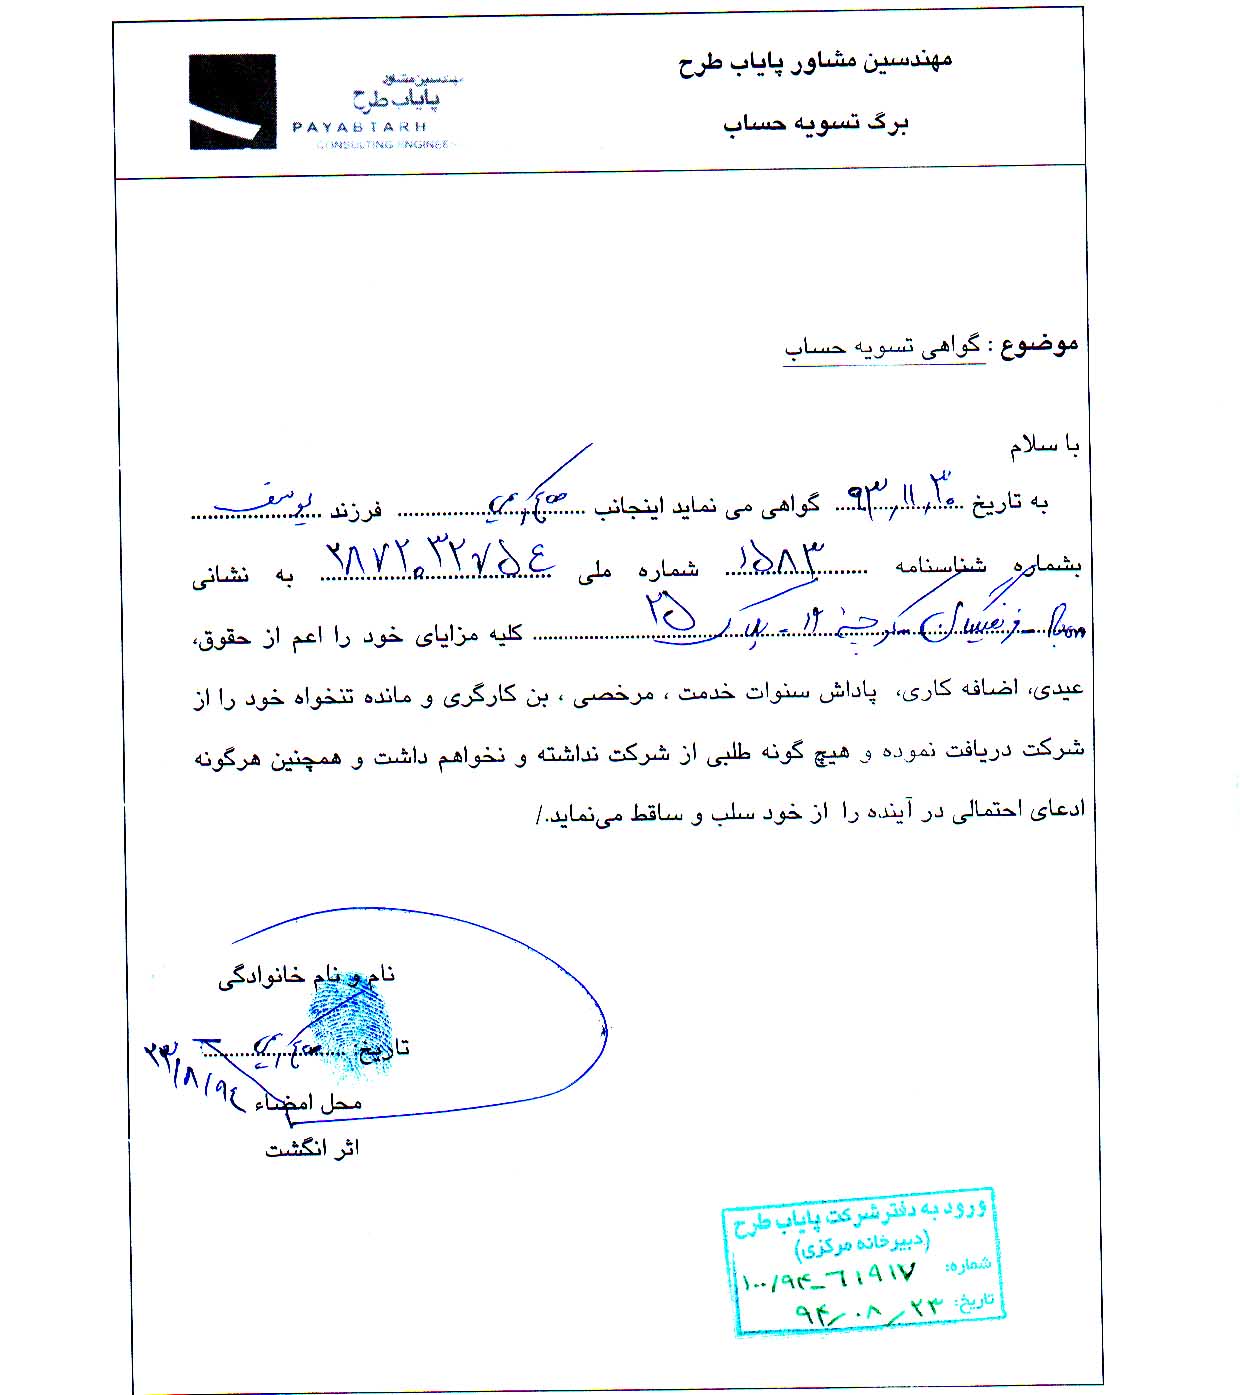 مهندسین مشاور پایاب طرح
برگ تسویه حساب
مهندسین مشاور
پایاب طرح
PAYABTARH
CONSULTING ENGINEE
موضوع : گواهی تسویه حساب
با سلام
به تاریخ ۹۳,۱۱,۳۰ گواهی می نماید اینجانب فرزند یوسف
بشماره شناسنامه ۱۵۸۳ شماره ملی ۲۸۷۲۰۳۲۷۵۴ به نشانی
کوچه ۱۲ - پلاک ۲۵ کلیه مزایای خود را اعم از حقوق،
عیدی، اضافه کاری، پاداش سنوات خدمت ، مرخصی ، بن کارگری و مانده تنخواه خود را از
شرکت دریافت نموده و هیچ گونه طلبی از شرکت نداشته و نخواهم داشت و همچنین هرگونه
ادعای احتمالی در آینده را از خود سلب و ساقط می‌نماید./
نام و نام خانوادگی
تاریخ:
۲۳/۸/۹۴
محل امضاء
اثر انگشت
ورود به دفتر شرکت پایاب طرح
(دبیرخانه مرکزی)
شماره: ۱۰۰/۹۴-۶۱۹۱۷
تاریخ: ۹۴/۰۸/۲۳